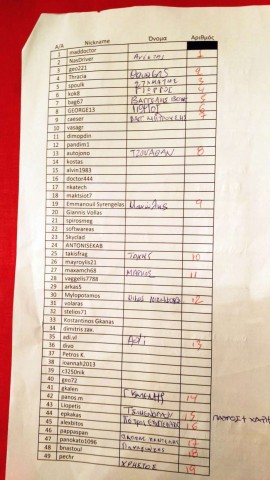 Α/Α Nickname Όνομα Αριθμός
1 maddoctor 1
2 kostDriver
3 geo221
4 Thracia 2
5 spoulk 3
6 kok8 ΓΙΩΡΓΟΣ 4
7 tsag67 ΒΑΓΓΕΛΗΣ 5
8 GEORGE13 6
9 caeser 7
10 vasagr
11 dimopdin
12 pandim1
13 autojono ΤΖΟΝΑΘΑΝ 8
14 kostas
15 alvin1983
16 doctor444
17 nkatech
18 maktsiot7
19 Emmanouil Syrengelas Μανώλης 9
20 Giannis Vollas
21 spirosmeg
22 softwareas
23 Skyclad
24 ANTONISEKAB
25 takisfrag ΤΑΚΗΣ 10
26 mayroylis21
27 maxamch68 ΜΑΡΙΟΣ 11
29 vaggelis7788
29 arkas5
30 Mylopotamos 12
31 volaras
32 stelios71
33 Kostantinos Gkanas
34 dimitris zax.
35 adi.vl Adi 13
36 divo
37 Petros K.
38 ioannah2013
39 c3250nik
40 geo72
41 gkalen
42 panos.m 14
43 Liopetis
44 epkakas 15
45 alexbitos 16
46 pappaspan
47 panokato1096 17
48 bnastoul 18
49 pechr ΧΡΗΣΤΟΣ 19